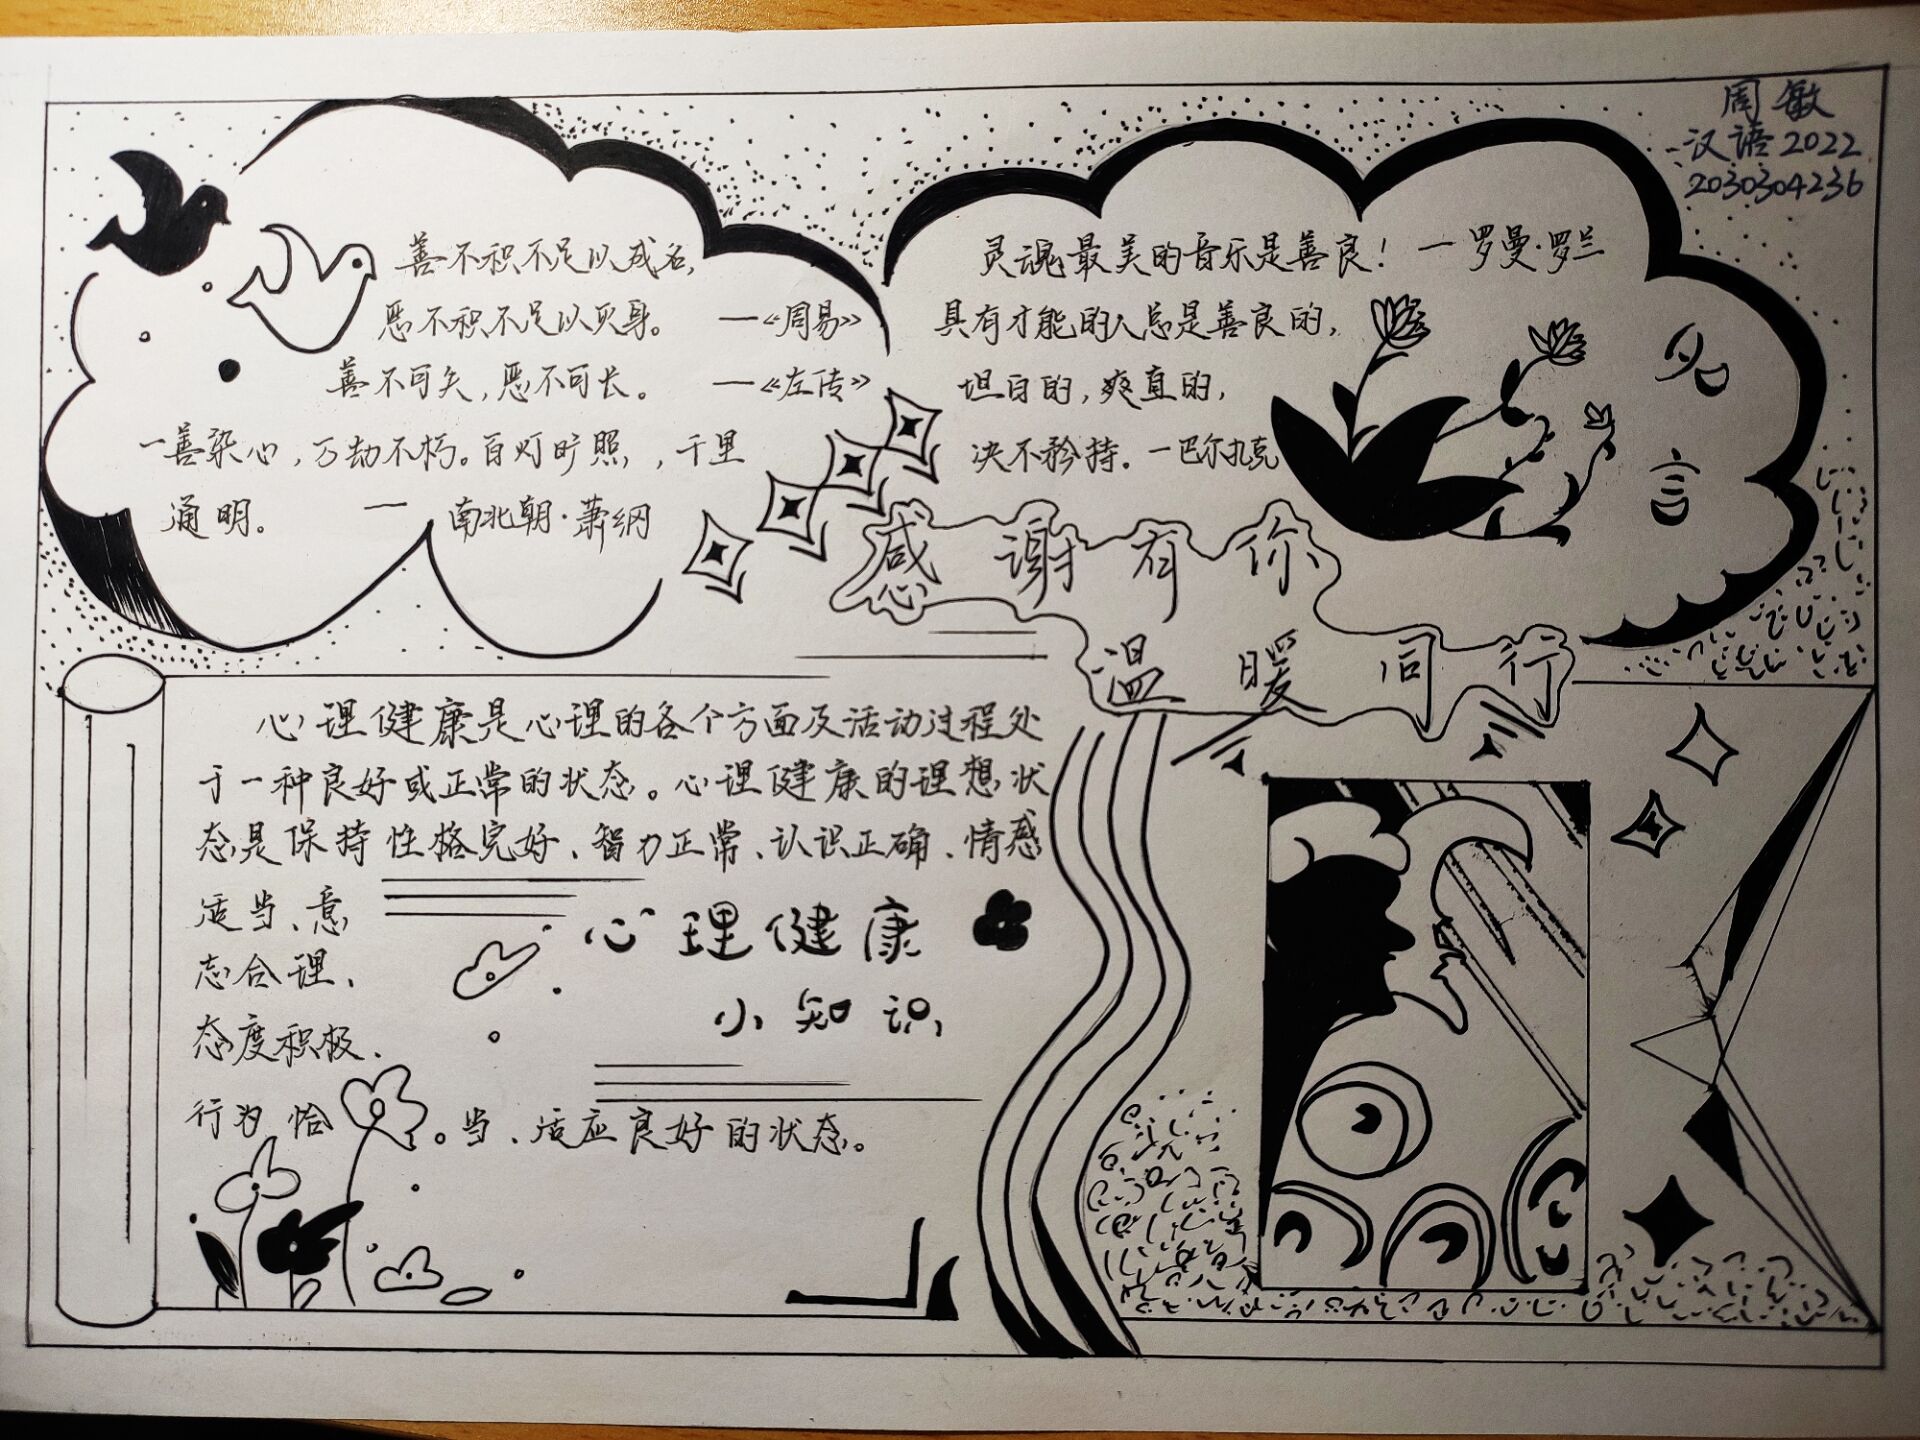 周敏
汉语2022
2030304236
善不积不足以成名,
恶不积不足以灭身。 —《周易》
善不可失,恶不可长。 —《左传》
一善染心,万劫不朽。百灯旷照,千里
通明。 — 南北朝·萧纲
灵魂最美的音乐是善良! —罗曼·罗兰
具有才能的人总是善良的,
坦白的,爽直的,
决不矜持。—巴尔扎克
名言
感谢有你
温暖同行
心理健康是心理的各个方面及活动过程处
于一种良好或正常的状态。心理健康的理想状
态是保持性格完好、智力正常、认识正确、情感
适当、意
志合理、
态度积极、
行为恰。当、适应良好的状态。
心理健康
小知识